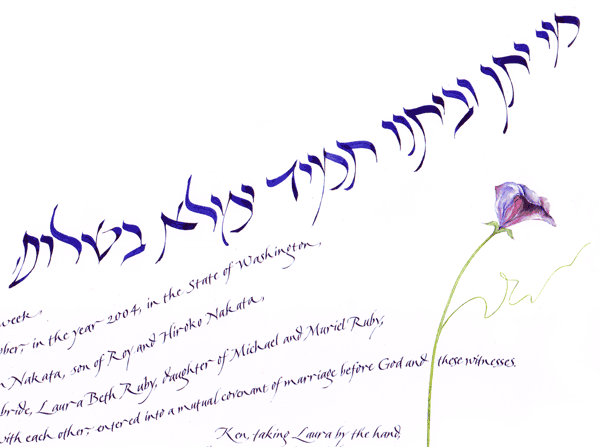 מי יתן וביתנו תמיד ימלא בשלום
week.
in the year 2004, in the State of Washington,
Nakata, son of Roy and Hiroko Nakata,
bride, Laura Beth Ruby, daughter of Michael and Muriel Ruby,
with each other, entered into a mutual covenant of marriage before God and these witnesses.
Ken, taking Laura by the hand,